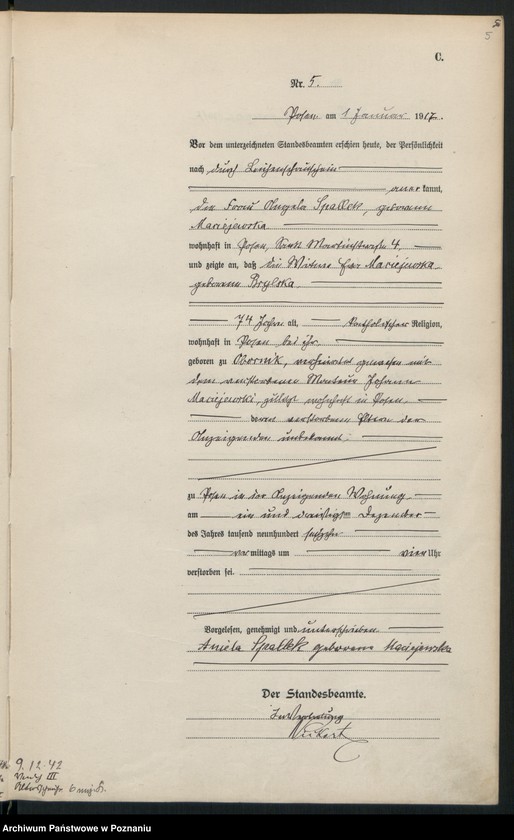 C.
5
Nr. 5.
Posen am 1 Januar 1917.
Vor dem unterzeichneten Standesbeamten erschien heute, der Persönlichkeit
nach durch Leichenschauschein
anerkannt,
die Frau Angela Spallek, geborene
Maciejewska
wohnhaft in Posen, Sankt Martinstraße 4.
und zeigte an, daß die Witwe Eva Maciejewska
geborene Brylska
74 Jahre alt, katholischer Religion,
wohnhaft in Posen bei ihr
geboren zu Obornik, verheiratet gewesen mit
dem verstorbenen Monteur Johann
Maciejewski, zuletzt wohnhaft in Posen,
deren verstorbene Eltern der
Anzeigenden unbekannt,
zu Posen in der Anzeigenden Wohnung
am ein und dreißigsten Dezember
des Jahres tausend neunhundert sechzehn
vormittags um vier Uhr
verstorben sei.
Vorgelesen, genehmigt und unterschrieben
Aniela Spallek geborene Maciejewska
Der Standesbeamte.
In Vertretung
9.12.42
III
6
Archiwum Państwowe w Poznaniu